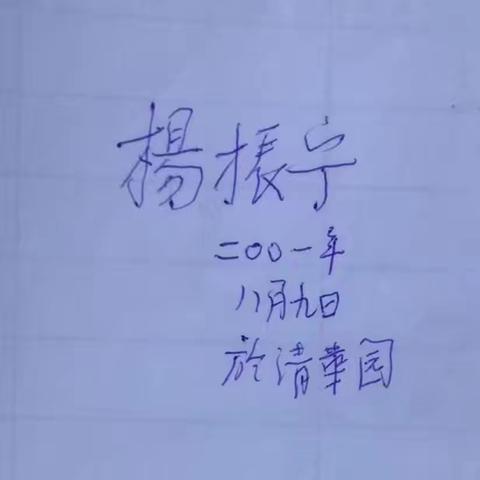 楊振宁
二〇〇一年
八月九日
於清華园